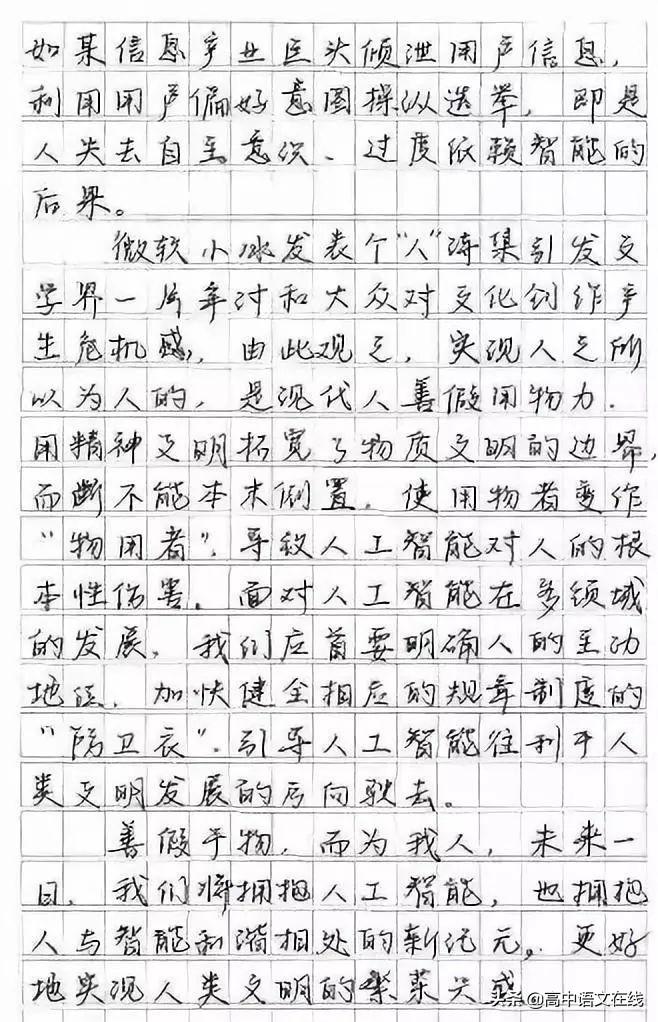 如某信息产业巨头倾泄用户信息,
利用用户偏好意图操纵选举,即是
人失去自主意识、过度依赖智能的
后果。
微软小冰发表个“人”诗集引发文
学界一片争讨和大众对文化创作产
生危机感,由此观之,实现人之所
以为人的,是现代人善假用物力.
用精神文明拓宽了物质文明的边界,
而断不能本末倒置,使用物者变作
“物用者”,导致人工智能对人的根
本性伤害。面对人工智能在多领域
的发展,我们应首要明确人的主动
地位,加快健全相应的规章制度的
“防卫衣”,引导人工智能往利于人
类文明发展的方向驶去。
善假于物,而为我人,未来一
日,我们将拥抱人工智能,也拥抱
人与智能和谐相处的新纪元,更好
地实现人类文明的繁荣兴盛
头条@高中语文在线